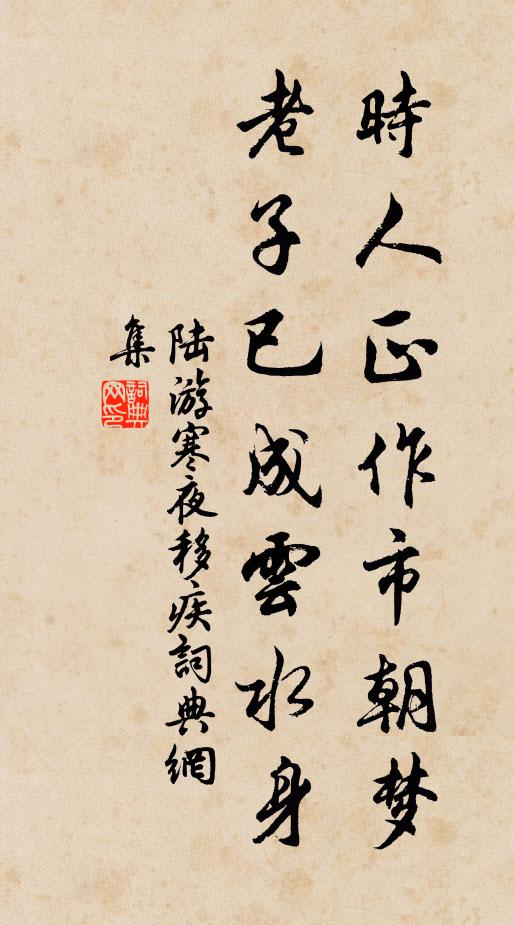 時人正作市朝梦
老子已成雲水身
陆游寒夜移疾詞典網
集
詞典
网印